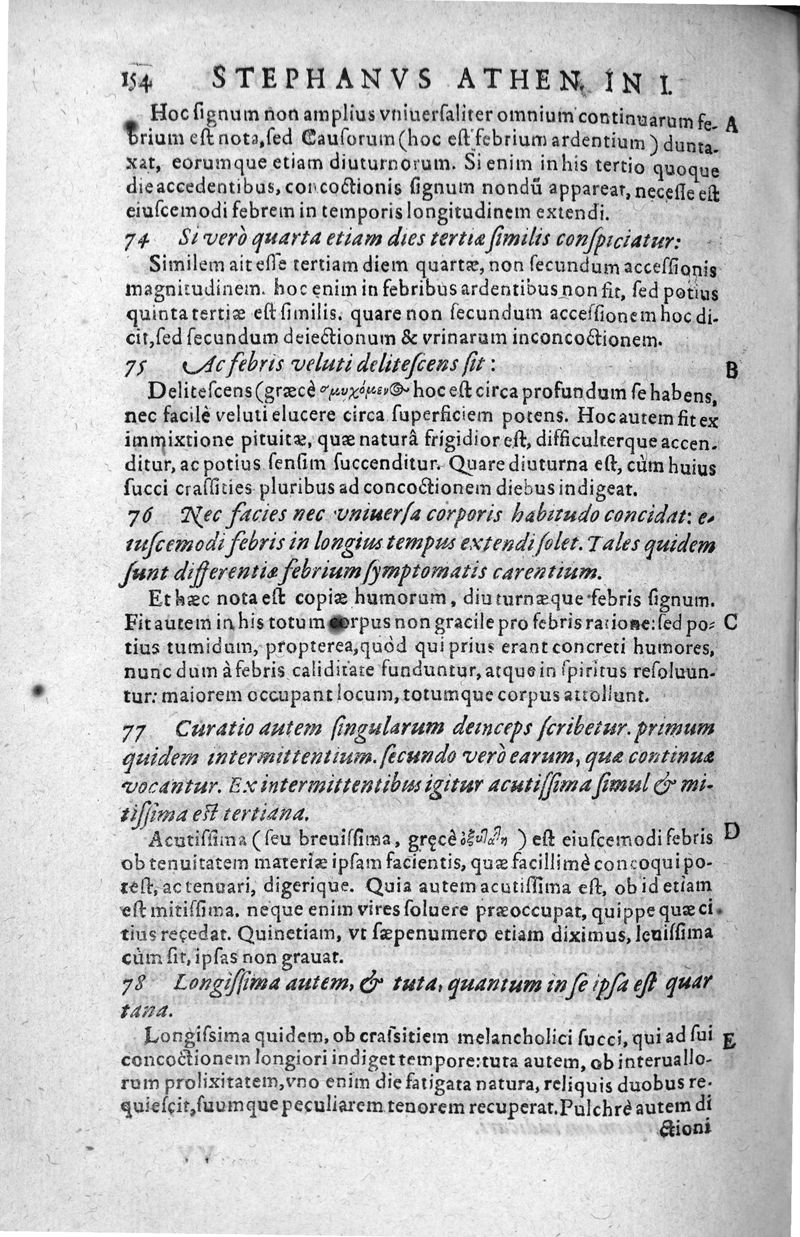 154 STEPHANVS ATHEN. IN I.
Hoc ſignum non amplius vniuerſaliter omnium continuarum fe- A
brium eſt nota, ſed Cauſorum (hoc eſt febrium ardentium) dunta-
xat, eorumque etiam diuturnorum. Si enim in his tertio quoque
die accedentibus, concoctionis ſignum nondū appareat, neceſſe eſt
eiuſcemodi febrem in temporis longitudinem extendi.
74 Si verò quarta etiam dies tertiæ ſimilis conſpiciatur:
Similem ait eſſe tertiam diem quartæ, non ſecundum acceſſionis
magnitudinem. hoc enim in febribus ardentibus non fit, ſed potius
quinta tertiæ eſt ſimilis. quare non ſecundum acceſſionem hoc di-
cit, ſed ſecundum deiectionum & vrinarum inconcoctionem.
75 Ac febris veluti deliteſcens ſit: B
Deliteſcens (græcè σμυχόμενος hoc eſt circa profundum ſe habens,
nec facilè veluti elucere circa ſuperficiem potens. Hoc autem fit ex
immixtione pituitæ, quæ naturâ frigidior eſt, difficulterque accen-
ditur, ac potius ſenſim ſuccenditur. Quare diuturna eſt, cùm huius
ſucci craſſities pluribus ad concoctionem diebus indigeat.
76 Nec facies nec vniuerſa corporis habitudo concidat: e-
iuſcemodi febris in longius tempus extendi ſolet. Tales quidem
ſunt differentiæ febrium ſymptomatis carentium.
Et hæc nota eſt copiæ humorum, diuturnæque febris ſignum.
Fit autem in his totum corpus non gracile pro febris ratione: ſed po- C
tius tumidum, propterea, quòd qui prius erant concreti humores,
nunc dum à febris caliditate funduntur, atque in ſpiritus reſoluun-
tur: maiorem occupant locum, totumque corpus attollunt.
77 Curatio autem ſingularum deinceps ſcribetur. primum
quidem intermittentium. ſecundo verò earum, quæ continuæ
vocantur. Ex intermittentibus igitur acutiſſima ſimul & mi-
tiſſima eſt tertiana.
Acutiſſima (ſeu breuiſſima, gręcè ὀξυτάτη) eſt eiuſcemodi febris D
ob tenuitatem materiæ ipſam facientis, quæ facillimè concoqui po-
teſt, ac tenuari, digerique. Quia autem acutiſſima eſt, ob id etiam
eſt mitiſſima. neque enim vires ſoluere præoccupat, quippe quæ ci
tius recedat. Quinetiam, vt ſæpenumero etiam diximus, leuiſſima
cùm ſit, ipſas non grauat.
78 Longiſſima autem, & tuta, quantum in ſe ipſa eſt quar
tana.
Longiſsima quidem, ob craſsitiem melancholici ſucci, qui ad ſui E
concoctionem longiori indiget tempore: tuta autem, ob interuallo-
rum prolixitatem, vno enim die fatigata natura, reliquis duobus re-
quieſcit, ſuumque peculiarem tenorem recuperat. Pulchrè autem di
ctioni